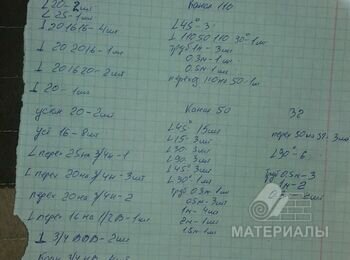 L 20-2шт
L 25-1шт
⊥ 201616-4шт
⊥ 202016-1шт
⊥ 201620-2шт
⊥ 20-1шт
20-2шт
16-8шт
L перех 25 на 3/4н-1
L перех 20 на 3/4н-3шт
перех 20 на 3/4н-2
L перех 16 на 1/2В-1шт
⊥ 3/4 ВВВ-2шт
Канал 110
L45°-3
⊥ 110 50 110 90°-1шт
труб 1м-3шт
0.3м-1шт
0.5м-1шт
переход 110 на 50-1шт
Канал 50
L45° 15шт
L15-3шт
L30 3шт
L90 3шт
L45° 3шт
L30° 1шт
труб 0.3м-1шт
0.5м-3шт
1м-4шт
2м-1шт
1.5м-1шт
32
перех 50 на 32-3шт
L30°-6
труб 0.5м-3
1м-2
МАТЕРИАЛЫ